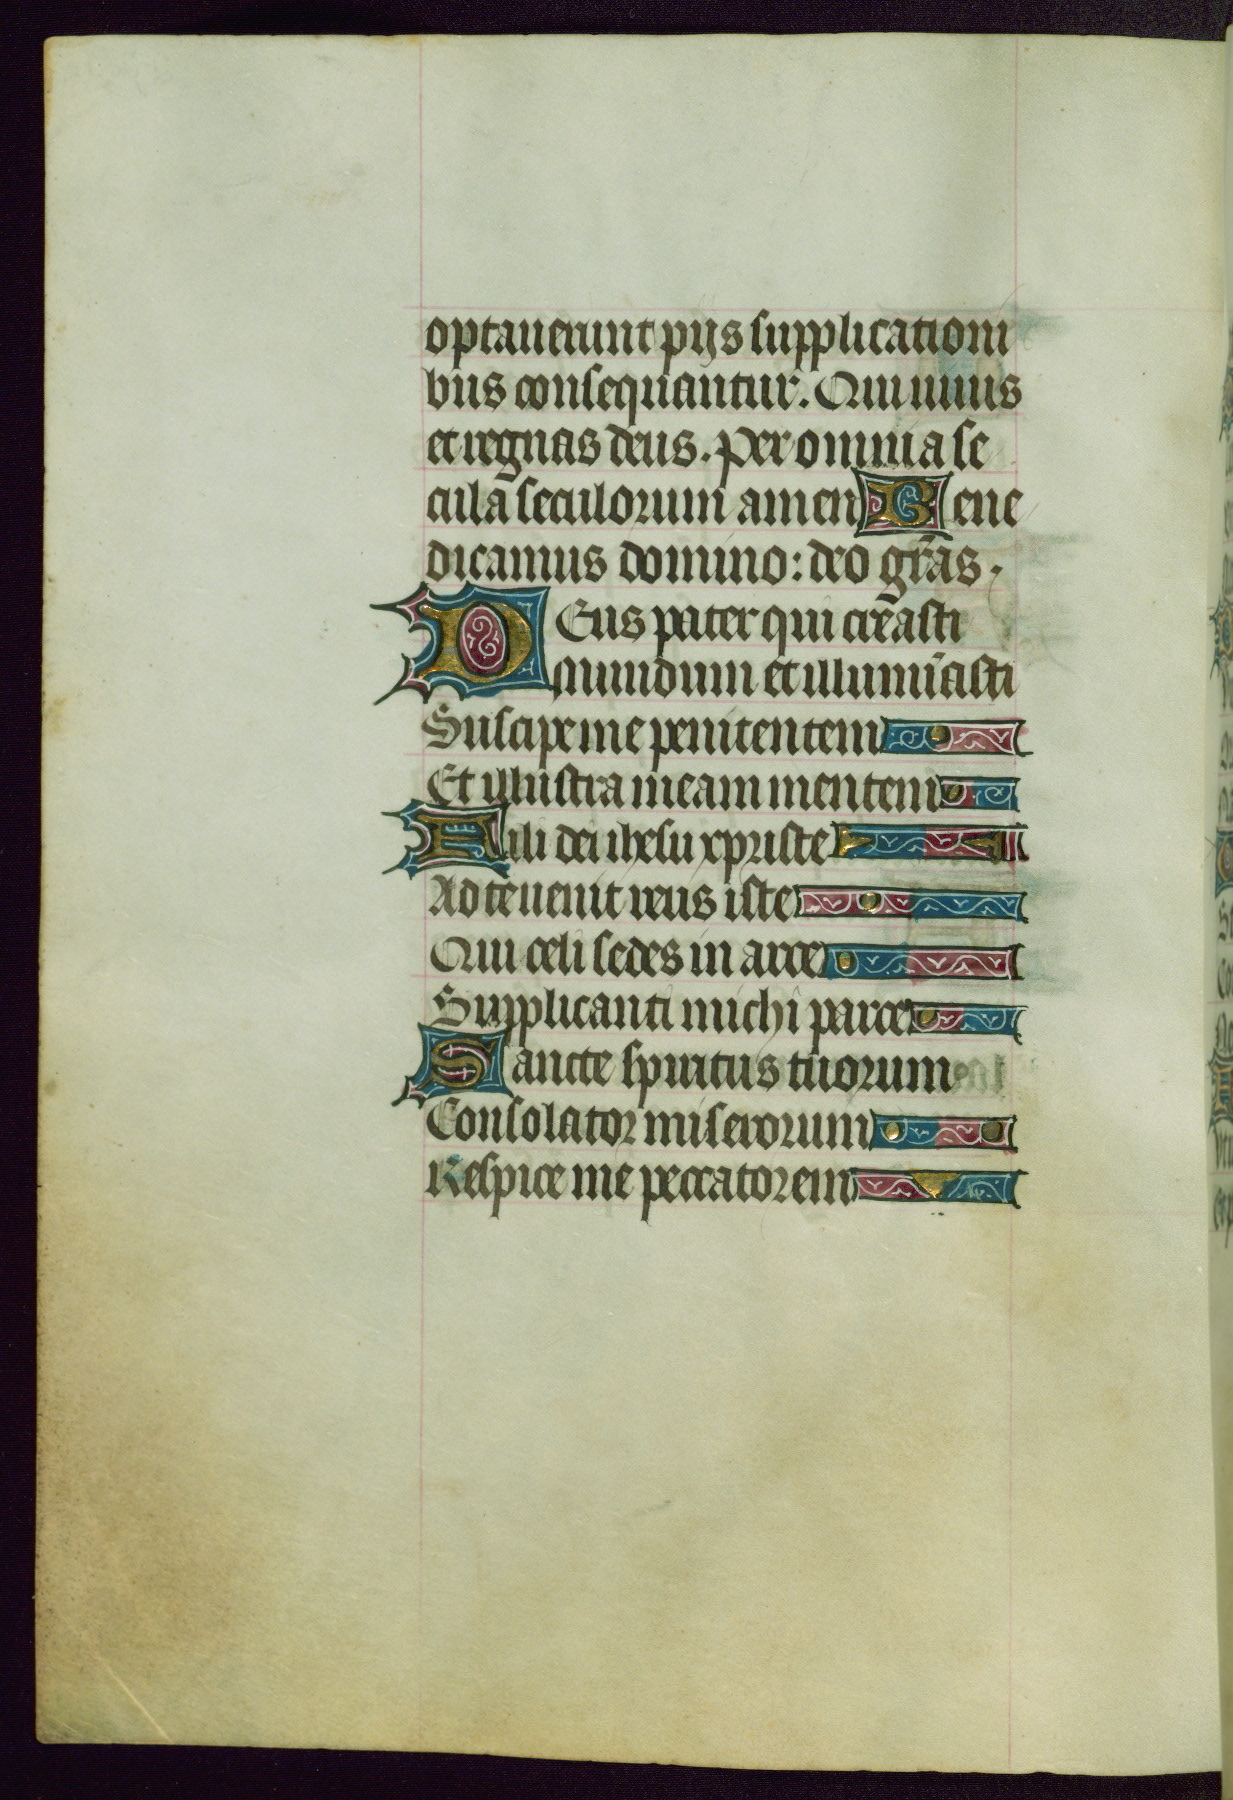 optauerunt pijs supplicationi
bus consequantur. Qui uiuis
et regnas deus. Per omnia se
cula seculorum amen Bene
dicamus domino: deo gr̃as.
DEus pater qui creasti
mundum et illumiãsti
Suscipe me penitentem
Et illustra meam mentem
Fili dei ihesu xpriste
Ad te uenit reus iste
Qui celi sedes in arce
Supplicanti michi parce
Sancte spiritus tuorum
Consolator miserorum
Respice me peccatorem